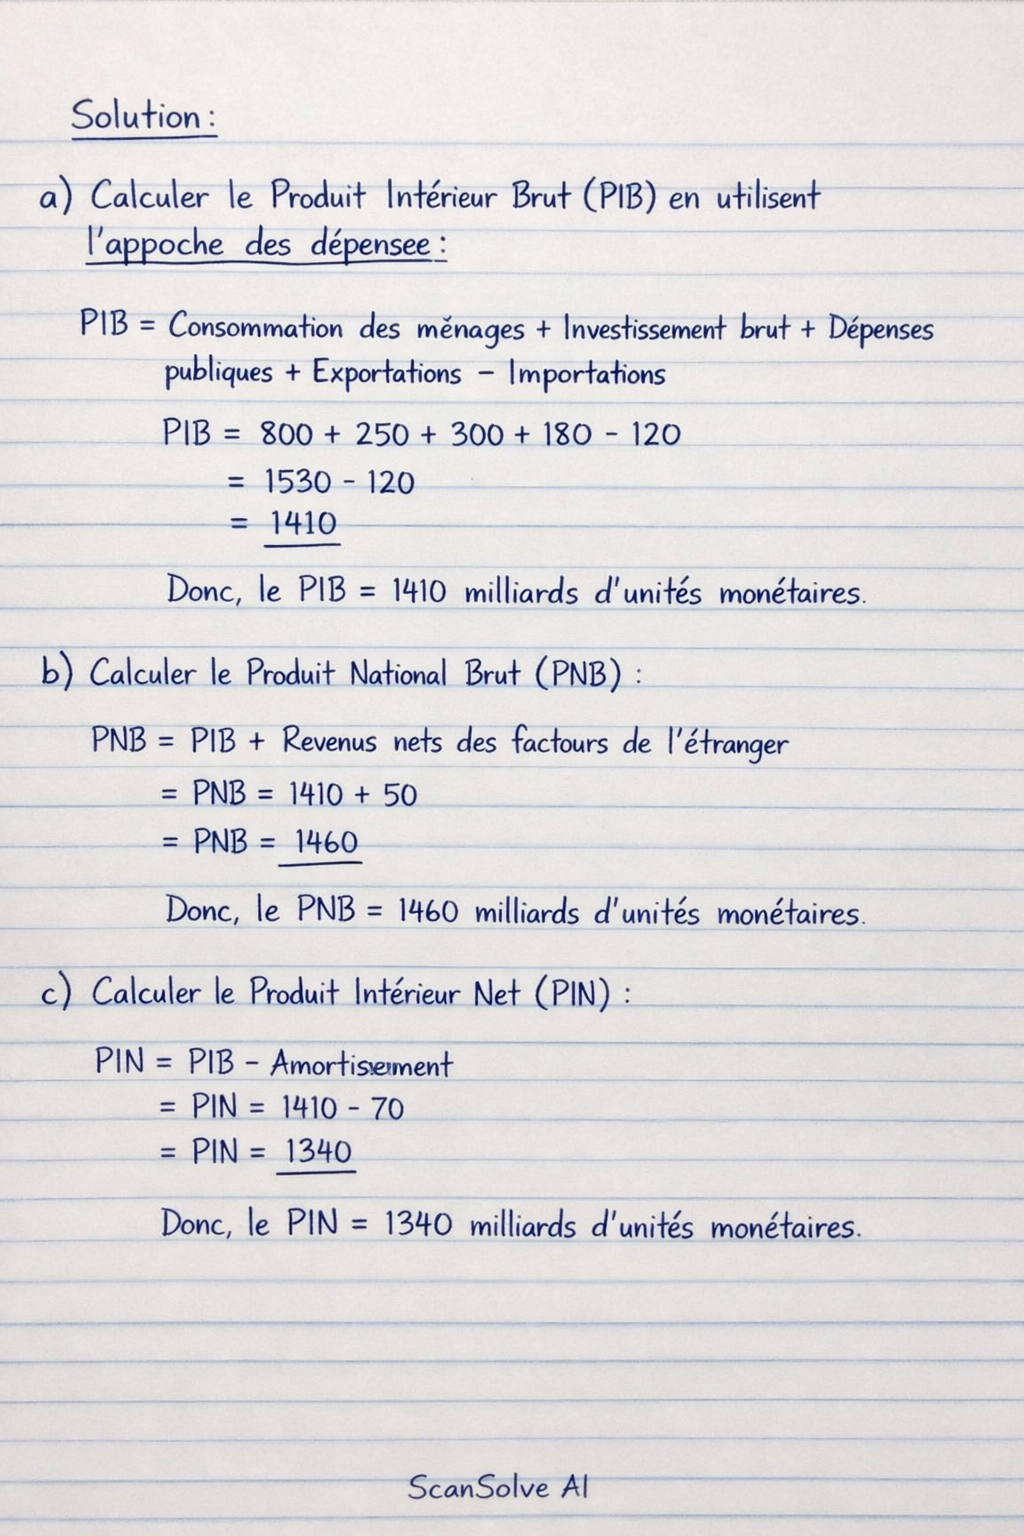 Solution :
a) Calculer le Produit Intérieur Brut (PIB) en utilisent
l'appoche des dépensee :
PIB = Consommation des ménages + Investissement brut + Dépenses
publiques + Exportations - Importations
PIB = 800 + 250 + 300 + 180 - 120
= 1530 - 120
= 1410
Donc, le PIB = 1410 milliards d'unités monétaires.
b) Calculer le Produit National Brut (PNB) :
PNB = PIB + Revenus nets des factours de l'étranger
= PNB = 1410 + 50
= PNB = 1460
Donc, le PNB = 1460 milliards d'unités monétaires.
c) Calculer le Produit Intérieur Net (PIN) :
PIN = PIB - Amortisement
= PIN = 1410 - 70
= PIN = 1340
Donc, le PIN = 1340 milliards d'unités monétaires.
ScanSolve AI